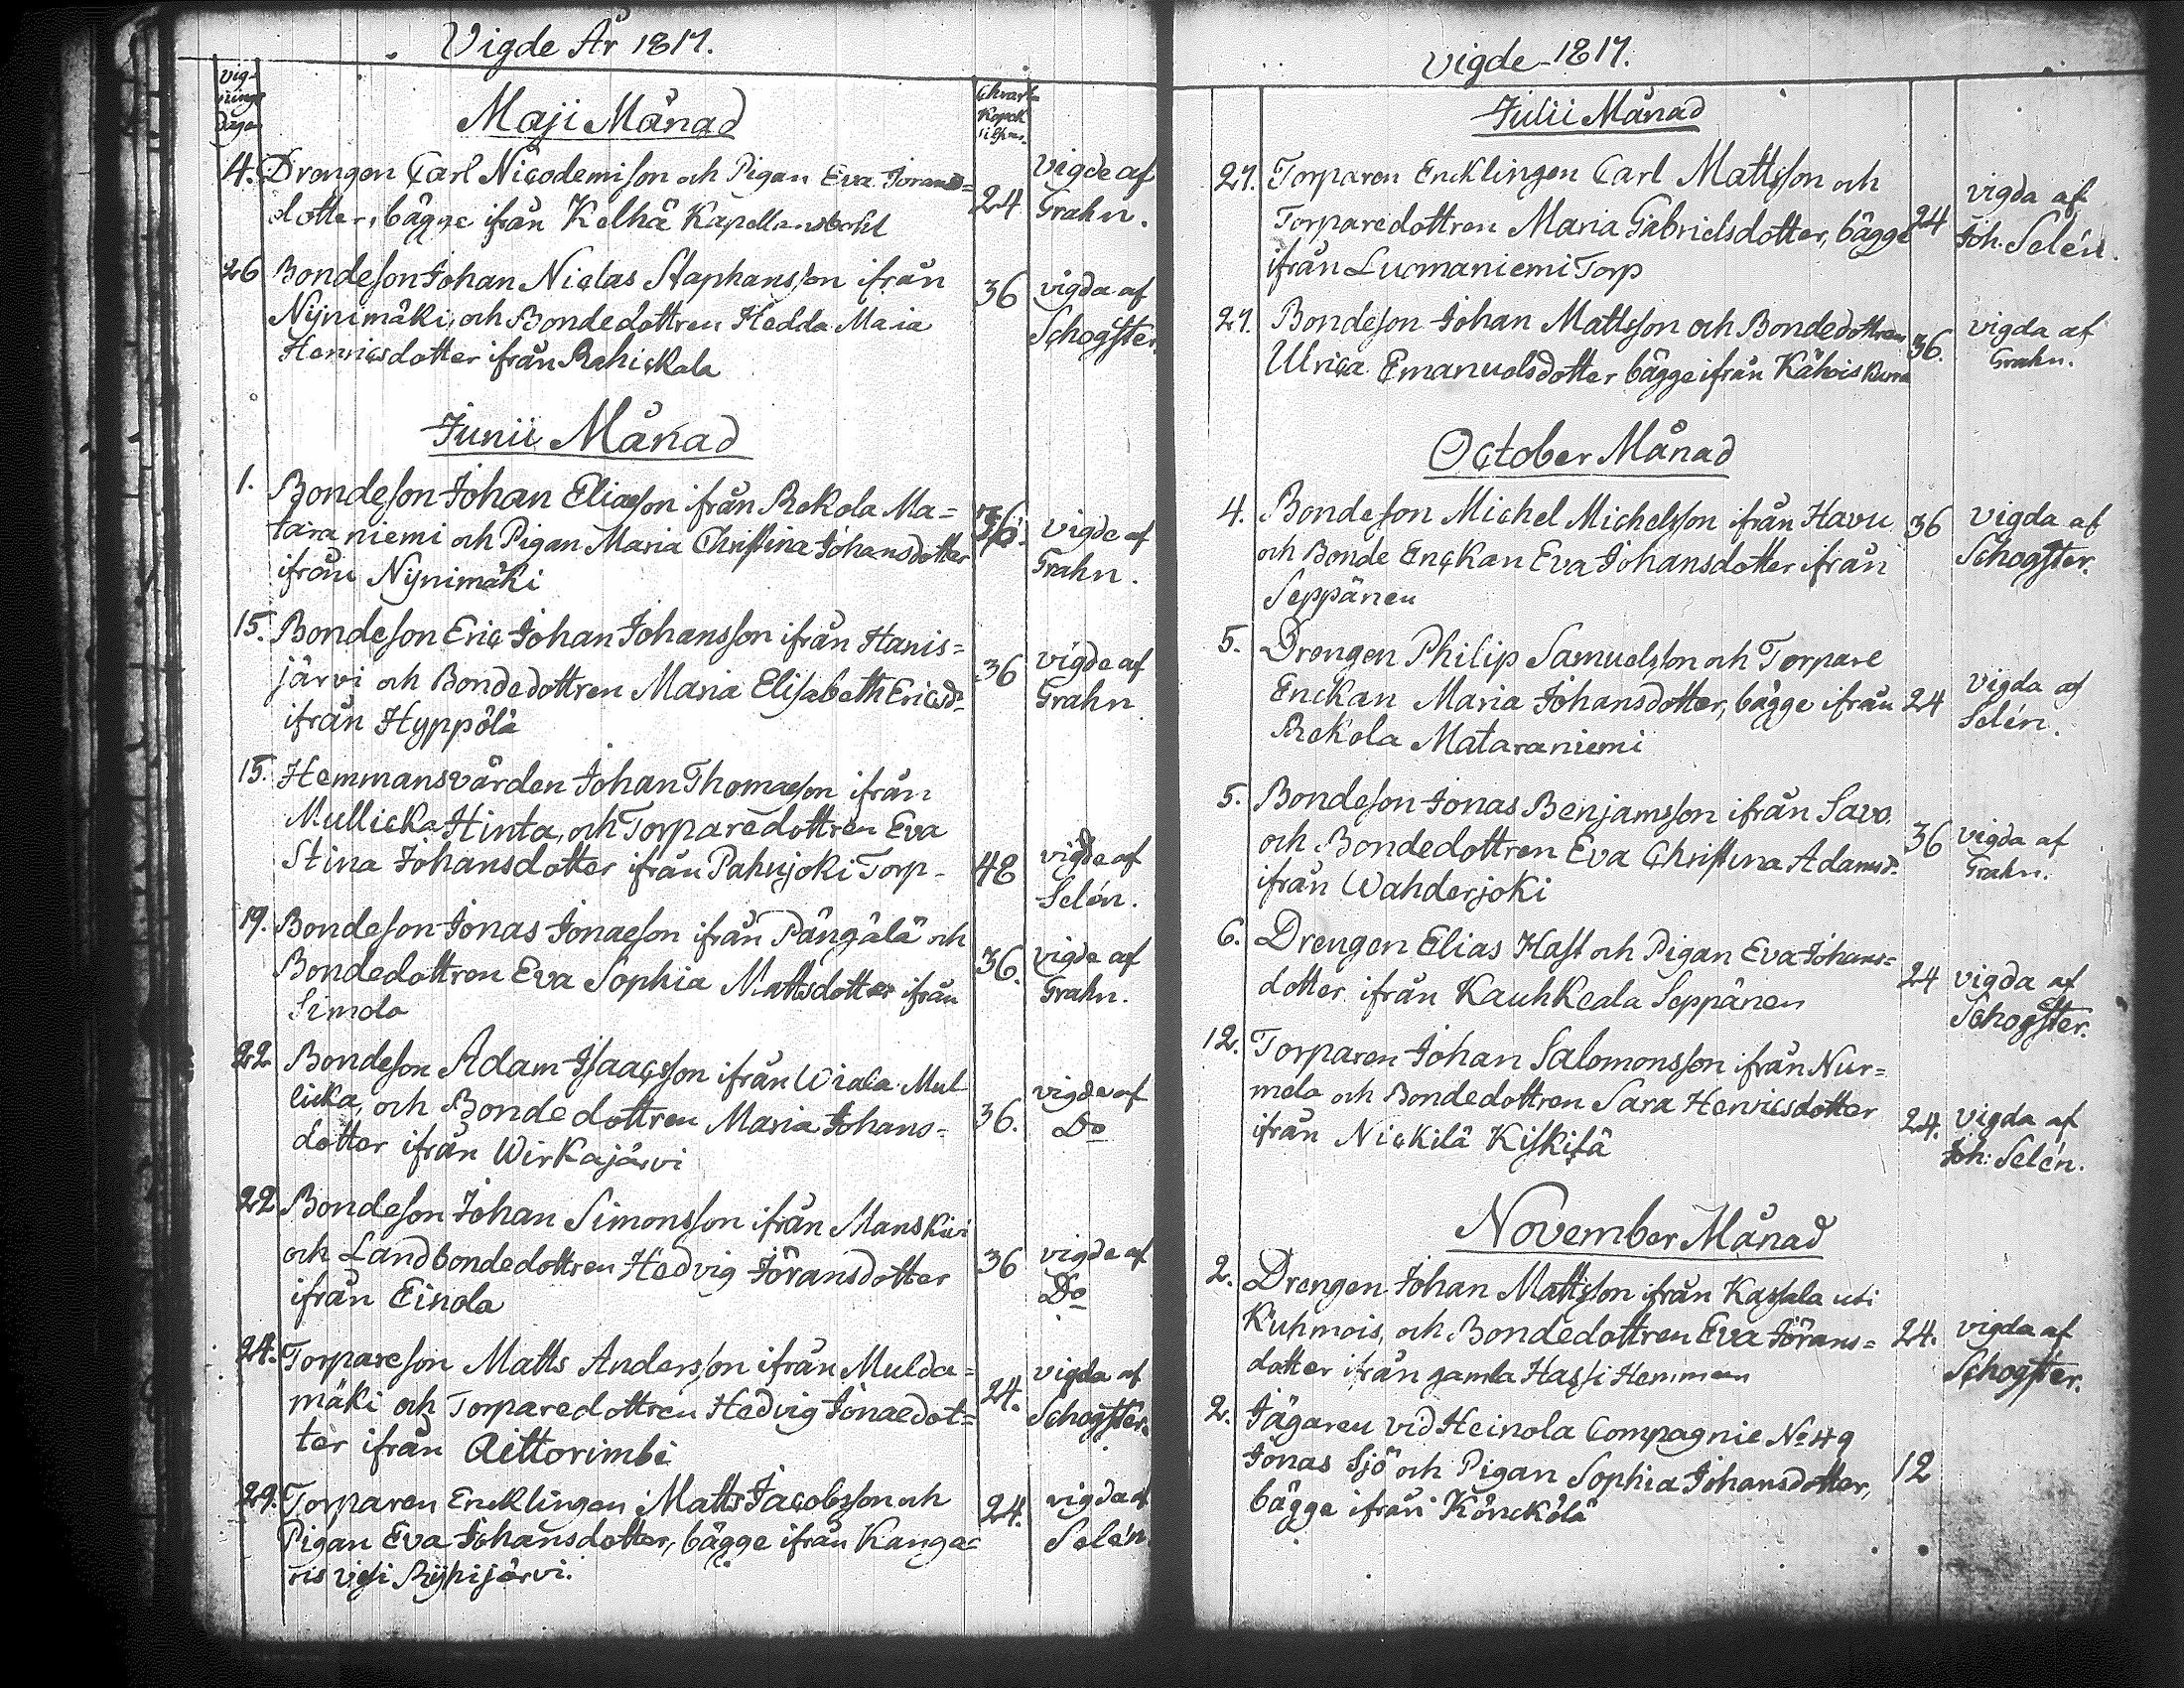 Vigde År 1817.
Vig-
nings
Dagen
Maji Månad
Kopek
Silfver.
4. Drengen Carl Nicodemisson och Pigan Eva Jörans=
dotter, bägge ifrån Kelhä Kapellansbohl
24
Vigde af
Grahn.
26 Bondeson Johan Niclas Staphansson ifrån
Nijnimäki, och Bondedottren Hedda Maia
Henricsdotter ifrån Rahickala
36
vigda af
Schogster.
Junii Månad
1. Bondeson Johan Eliaeson ifrån Rekola Ma=
taraniemi och Pigan Maria Christina Johansdotter
ifrån Nijnimäki
36.
vigde af
Grahn.
15. Bondeson Eric Johan Johansson ifrån Hanis=
järvi och Bondedottren Maria Elisabeth Ericsd.
ifrån Hyppölä
36
vigde af
Grahn
15. Hemmansvärden Johan Thomaeson ifrån
Mullicka Hinta, och Torparedottren Eva
Stina Johansdotter ifrån Pahnjoki Torp.
48
vigde af
Selén.
19. Bondeson Jonas Jonaeson ifrån Pängälä och
Bondedottren Eva Sophia Mattsdotter ifrån
Simola
36.
vigde af
Grahn.
22 Bondeson Adam Isaacsson ifrån Wiala Mul
licka, och Bondedottren Maria Johans=
dotter ifrån Wirkajärvi
36.
vigde af
Do
22 Bondeson Johan Simonsson ifrån Manskivi
och Landbondedottren Hedvig Jöransdotter
ifrån Einola
36
vigde af
Do
24. Torpareson Matts Andersson ifrån Mulda=
mäki och Torparedottren Hedvig Jonaedot=
ter ifrån Aittorimbi
24.
vigda af
Schogster.
29. Torparen Encklingen Matts Jacobsson och
Pigan Eva Johansdotter, bägge ifrån Kanga=
ris vesi Rijhijärvi.
24.
vigda af
Selén.
vigde 1817.
Julii Månad
27. Torparen Encklingen Carl Mattsson och
Torparedottren Maria Gabrielsdotter, bägge
ifrån Luomaniemi Torp
24
vigda af
Joh: Selén.
27. Bondeson Johan Mattsson och Bondedottren
Ulrica Emanuelsdotter bägge ifrån Kähois
36.
vigda af
Grahn.
October Månad
4. Bondeson Michel Michelsson ifrån Havu
och Bonde Enckan Eva Johansdotter ifrån
Seppänen
36
vigda af
Schogster.
5. Drengen Philip Samuelsson och Torpare
Enckan Maria Johansdotter, bägge ifrån
Rekola Mataraniemi
24
vigda af
Selén.
5. Bondeson Jonas Benjamsson ifrån Savo
och Bondedottren Eva Christina Adamsd.
ifrån Wahderjoki
36
vigda af
Grahn.
6. Drengen Elias Hast och Pigan Eva Johans=
dotter ifrån Kauhkeala Seppänen
24
vigda af
Schogster.
12. Torparen Johan Salomonsson ifrån Nur=
mela och Bondedottren Sara Henricsdotter
ifrån Nickilä Kiskilä
24.
vigda af
Joh: Selén.
November Månad
2. Drengen Johan Mattsson ifrån Kassala uti
Kuhmois, och Bondedottren Eva Jörans=
dotter ifrån gamla Hassi Hemman
24.
vigda af
Schogster.
2. Jägaren vid Heinola Compagnie No 49
Jonas Sjö och Pigan Sophia Johansdotter,
bägge ifrån Könckölä
12